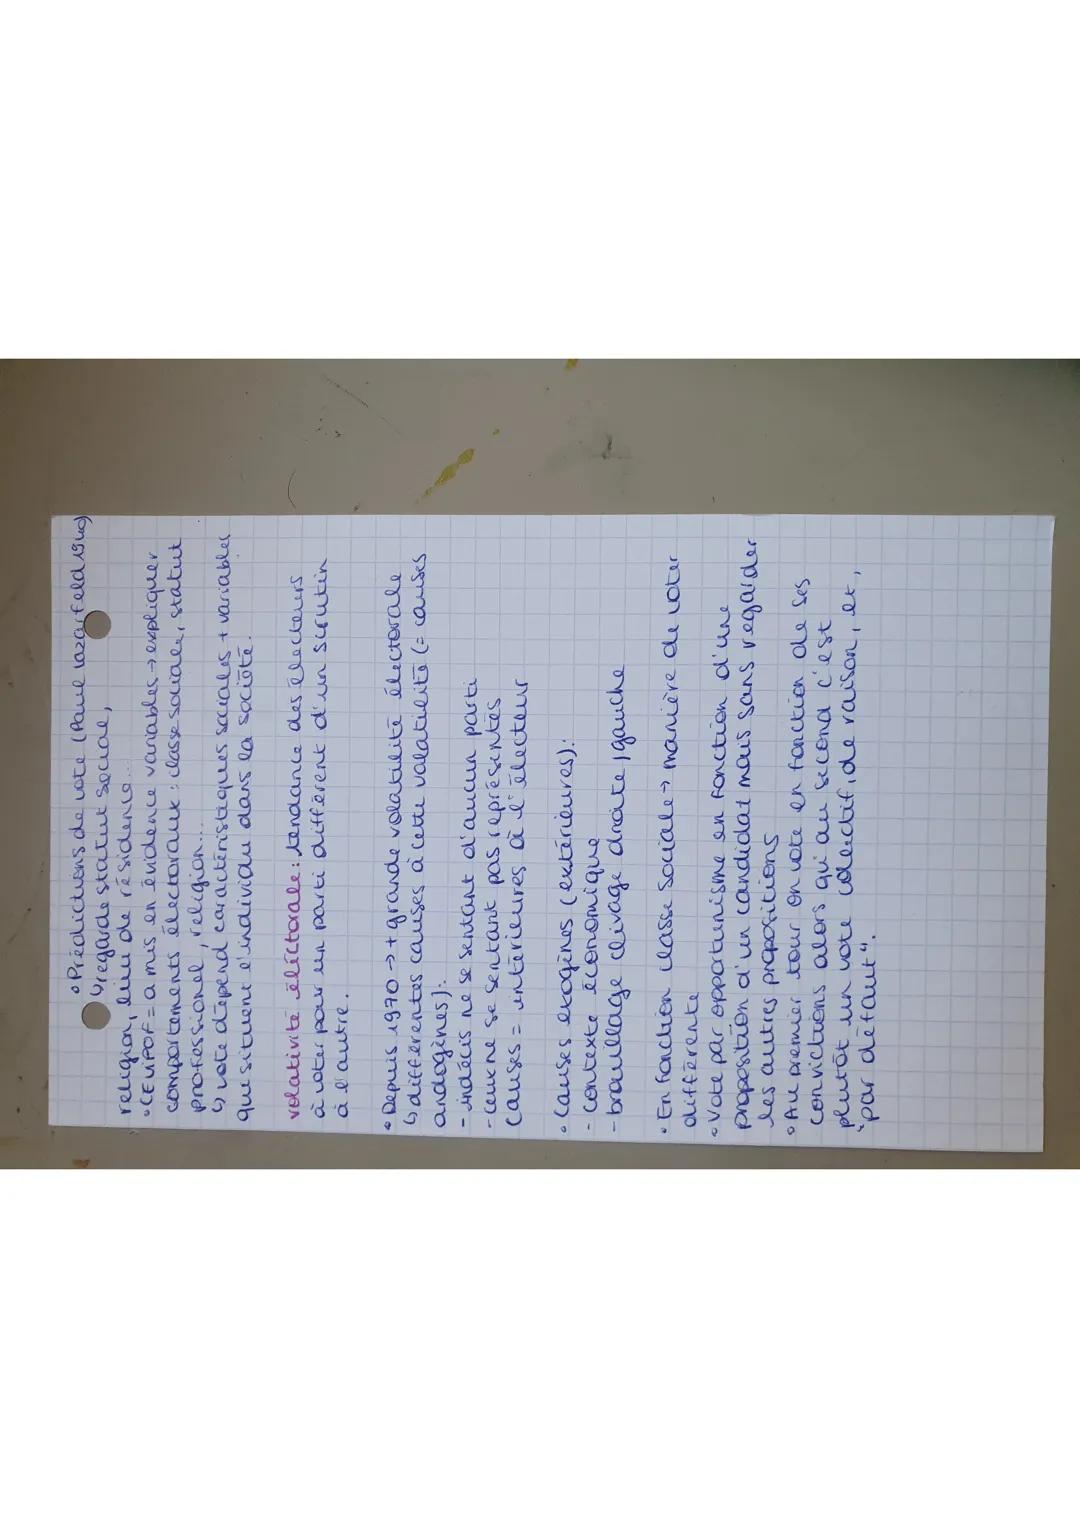 • Prédictions de vote (Paul Lazarfeld 1940)
↳ regarde statut social,
religion, lieu de résidence...
• CEVIPOF = a mis en évidence variables → expliquer
comportements électoraux : classe sociale, statut
professionel, religion...
↳ vote dépend caractéristiques sociales + variables
qui situent l'individu dans la société.
volativité éléctorale : tendance des électeurs
à voter pour un parti différent d'un scrutin
à l'autre.
• Depuis 1970 → + grande volatilité électorale
↳ différentes causes à cette volatilité (= causes
andogènes) :
- indécis ne se sentant d'aucun parti
- ceux ne se sentant pas représentés
Causes = intérieures à l'électeur
• Causes exogènes (extérieures) :
- contexte économique
- brouillage clivage droite / gauche
• En fonction classe sociale → manière de voter
différente
• Vote par opportunisme en fonction d'une
proposition d'un candidat mais sans regarder
les autres propositions
• Au premier tour on vote en fonction de ses
convictions alors qu'au second c'est
plutôt un vote collectif, de raison, et,
"par défaut".